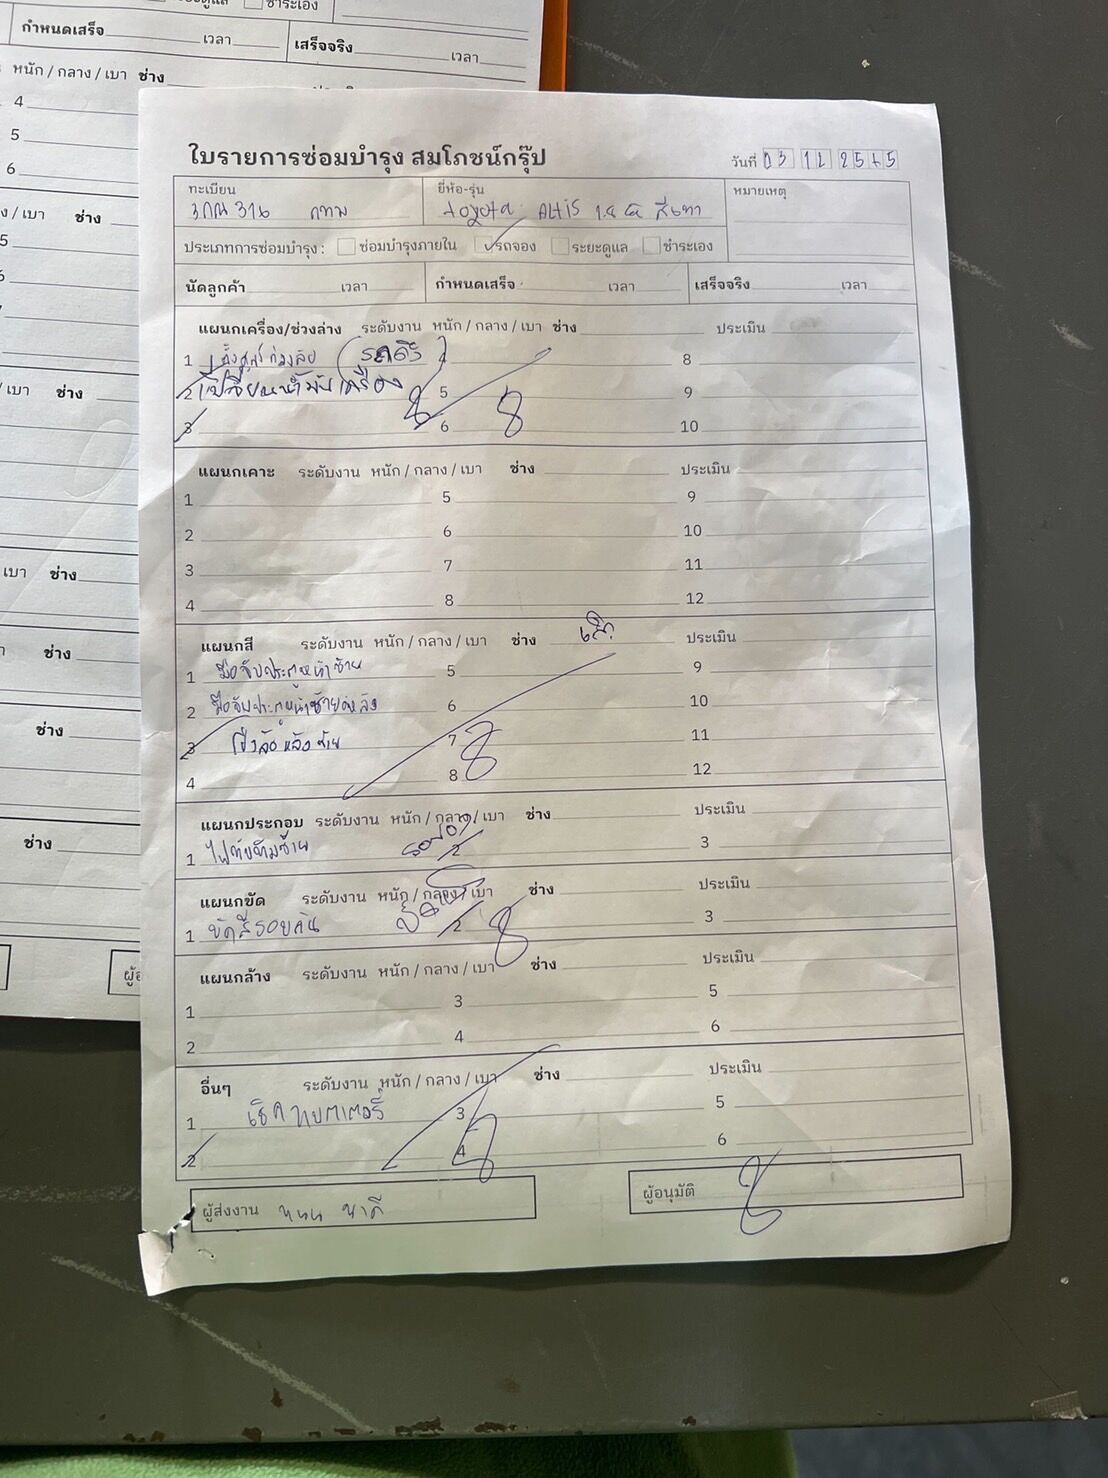 ระยะดูแล ชำระเอง
กำหนดเสร็จ เวลา เสร็จจริง เวลา
หนัก / กลาง / เบา ช่าง
4
5
6
/เบา ช่าง
5
เบา ช่าง
เบา ช่าง
ช่าง
ช่าง
ช่าง
ใบรายการซ่อมบำรุง สมโภชน์กรุ๊ป วันที่ 03 12 2565
ทะเบียน ยี่ห้อ-รุ่น หมายเหตุ
3กณ 316 กทม toyota ALTIS สีเทา
ประเภทการซ่อมบำรุง : ซ่อมบำรุงภายใน รถจอง ระยะดูแล ชำระเอง
นัดลูกค้า เวลา กำหนดเสร็จ เวลา เสร็จจริง เวลา
แผนกเครื่อง/ช่วงล่าง ระดับงาน หนัก / กลาง / เบา ช่าง ประเมิน
1 ตั้งศูนย์ถ่วงล้อ 4 8
2 เปลี่ยนน้ำมันเครื่อง 5 9
3 6 10
แผนกเคาะ ระดับงาน หนัก / กลาง / เบา ช่าง ประเมิน
1 5 9
2 6 10
3 7 11
4 8 12
แผนกสี ระดับงาน หนัก / กลาง / เบา ช่าง ประเมิน
1 มือจับประตูหน้าซ้าย 5 9
2 มือจับประตูหน้าซ้ายหลัง 6 10
3 โป่งล้อหลังซ้าย 7 11
4 8 12
แผนกประกอบ ระดับงาน หนัก / กลาง / เบา ช่าง ประเมิน
1 ไฟท้ายซ้าย 2 3
แผนกขัด ระดับงาน หนัก / กลาง / เบา ช่าง ประเมิน
1 ขัดสีรอบคัน 2 3
แผนกล้าง ระดับงาน หนัก / กลาง / เบา ช่าง ประเมิน
1 3 5
2 4 6
อื่นๆ ระดับงาน หนัก / กลาง / เบา ช่าง ประเมิน
1 แบตเตอรี่ 3 5
2 4 6
ผู้ส่งงาน ผู้อนุมัติ